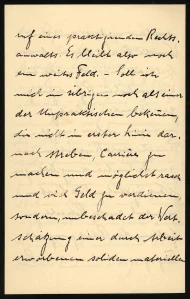 ruf eines praktizierenden Rechts-
anwalts. Es bleibt also noch
ein weites Feld. – Soll ich
mich im übrigen noch als einer
der Unpraktischen bekennen,
die nicht in erster Linie dar-
nach streben, Carrière zu
machen und möglichst rasch
und viel Geld zu verdienen
sondern, unbeschadet der Wert-
schätzung einer durch Arbeit
erworbenen soliden materiellen